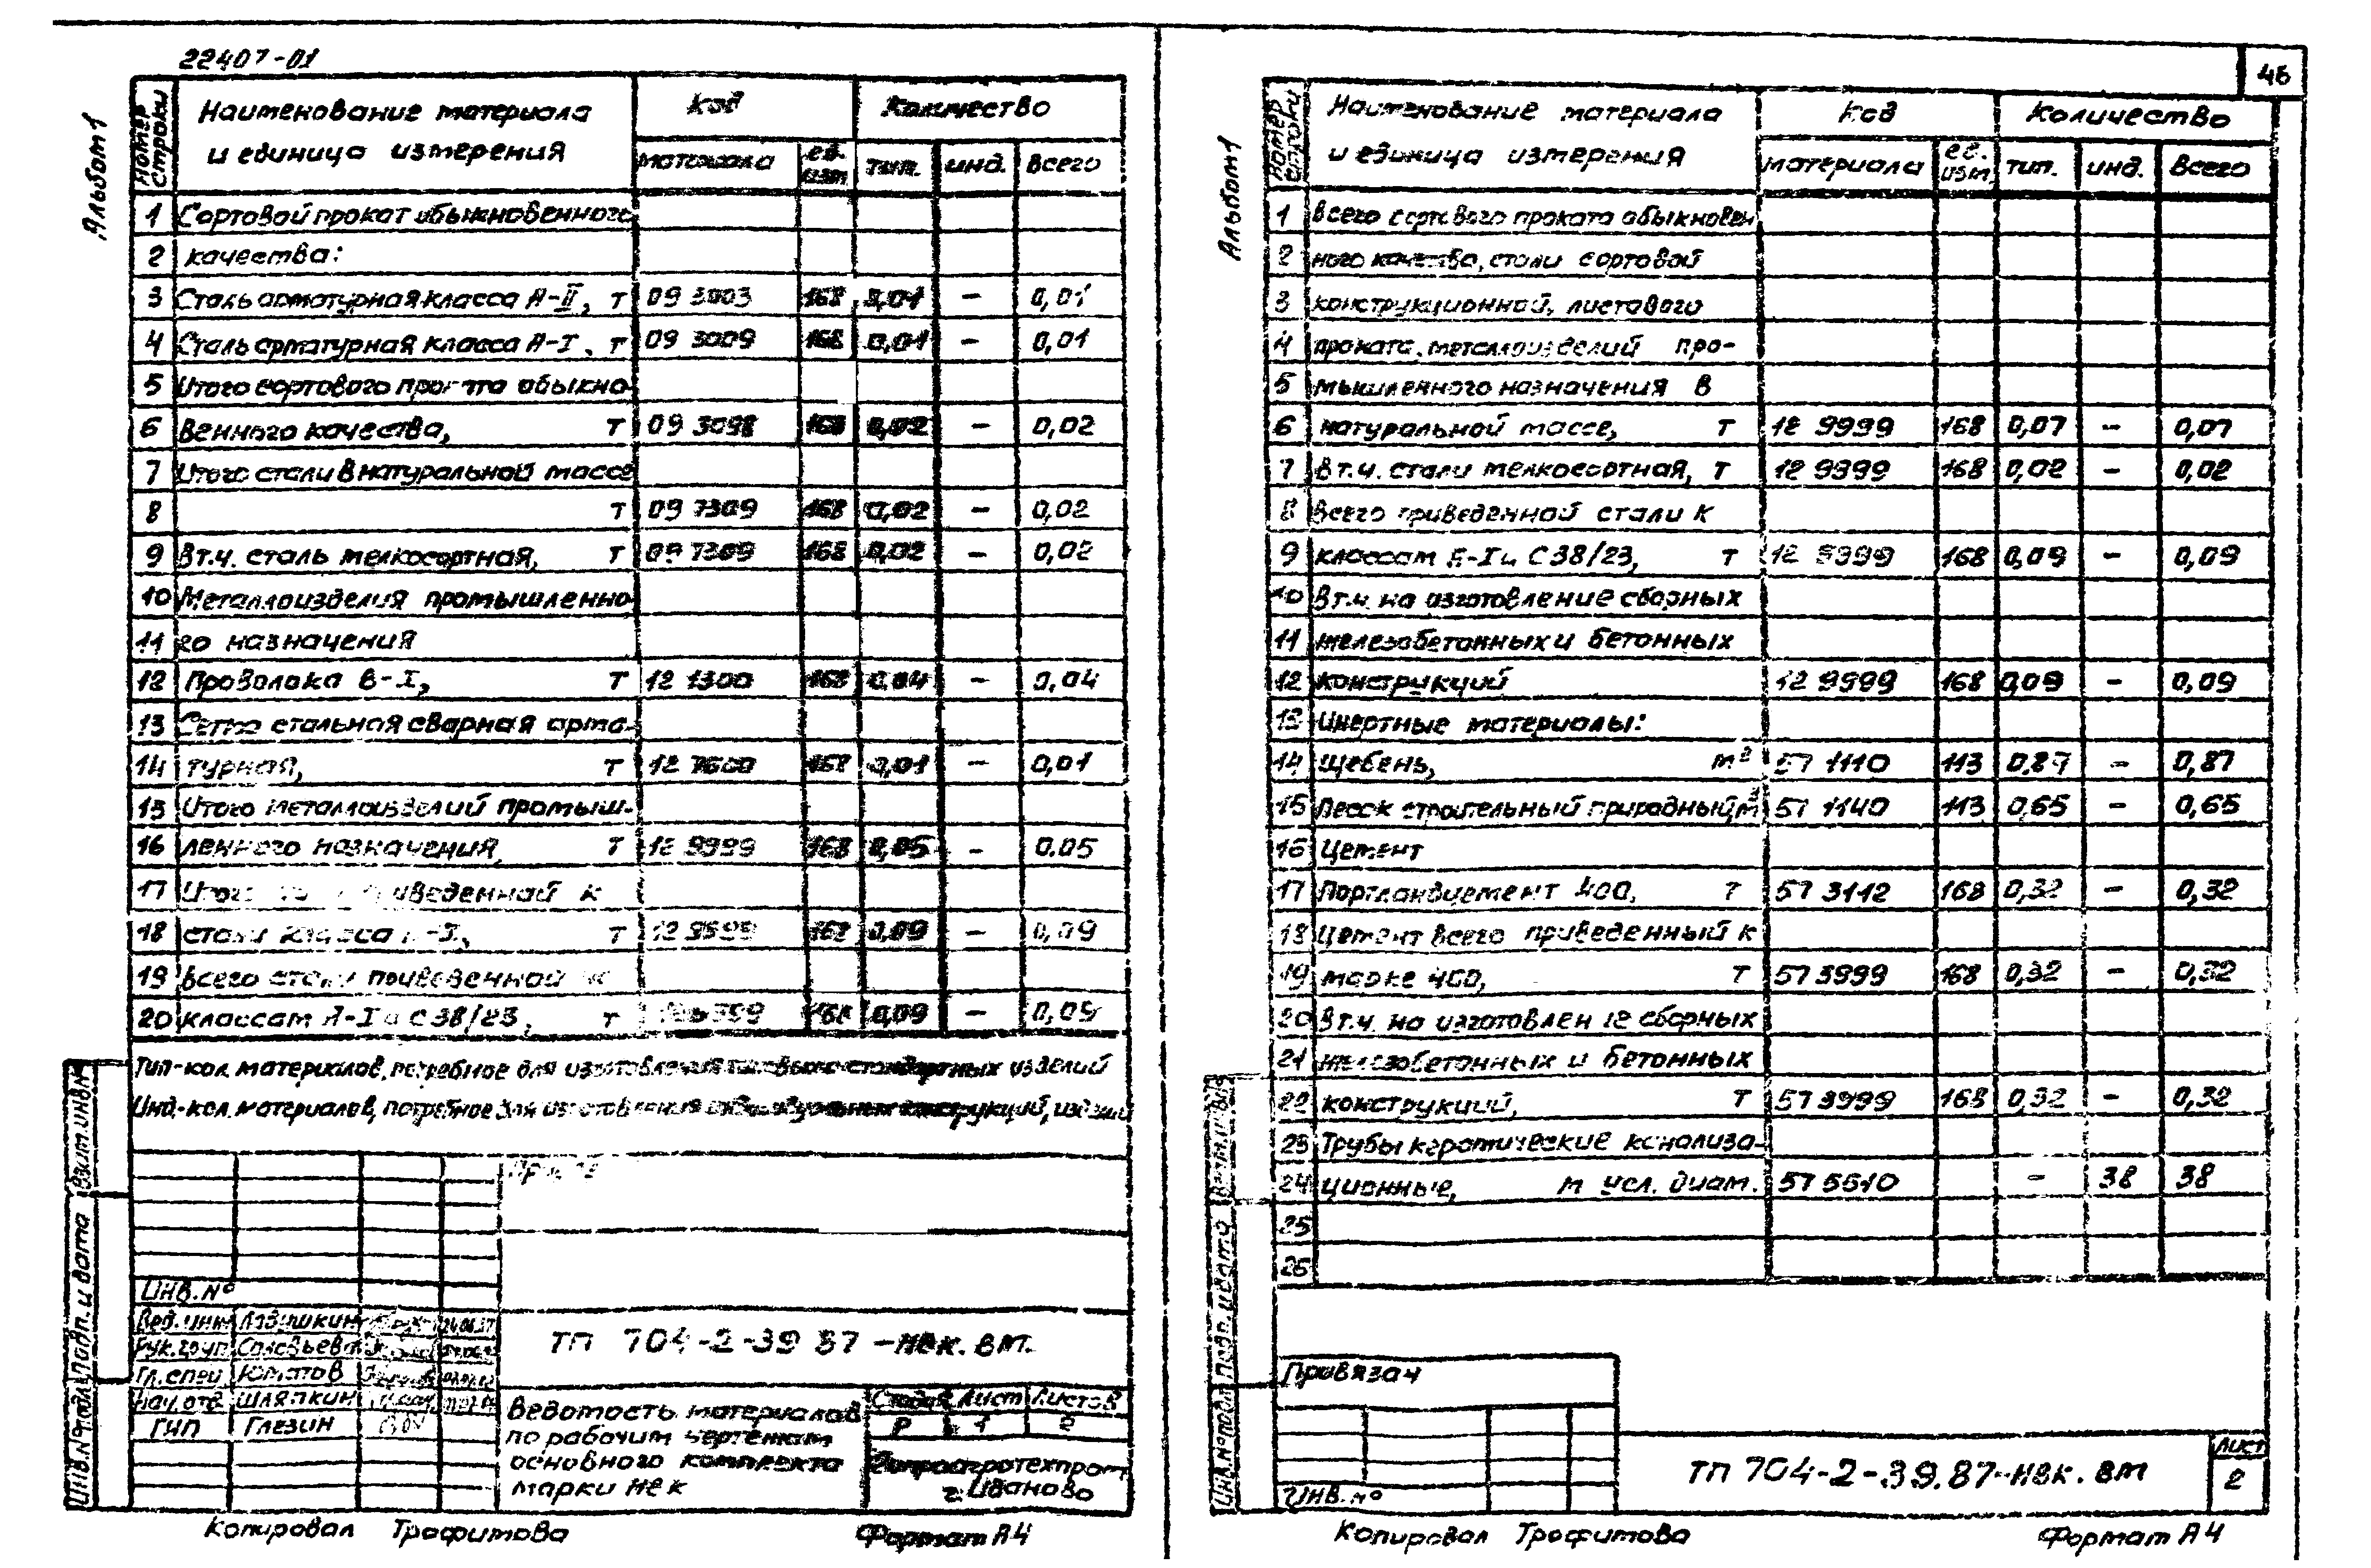 22407-01
Альбом 1
Номер строки
Наименование материала
и единица измерения
Код
Количество
материала
ед. изм
тип.
инд.
всего
1 Сортовой прокат обыкновенного
2 качества:
3 Сталь арматурная класса А-II, т 09 3003 168 0,01 – 0,01
4 Сталь арматурная класса А-I, т 09 3009 168 0,01 – 0,01
5 Итого сортового проката обыкно-
6 венного качества, т 09 3098 168 0,02 – 0,02
7 Итого стали в натуральной массе
8 т 09 7309 168 0,02 – 0,02
9 В т.ч. сталь мелкосортная, т 09 7309 168 0,02 – 0,02
10 Металлоизделия промышленно-
11 го назначения
12 Проволока В-I, т 12 1300 168 0,04 – 0,04
13 Сетка стальная сварная арма-
14 турная, т 12 7600 168 0,01 – 0,01
15 Итого металлоизделий промыш-
16 ленного назначения, т 12 9999 168 0,05 – 0.05
17 Итого приведенной к
18 стали класса А-I, т 12 9999 168 0,09 – 0,09
19 Всего стали приведенной к
20 классам А-I и С 38/23, т 168 0,09 – 0,09
Тип-кол. материалов, потребное для изготовления типовых и стандартных изделий
Инд-кол. материалов, потребное для изготовления индивидуальных конструкций, изделий
Взам. инв. №
Подп. и дата
Инв. № подл.
Инв. №
Вед. инж
Рук. груп. Соловьева
Гл. спец
Нач. отд. Шляпкин
ГИП Глезин
ТП 704-2-39 87 –НВК. ВМ.
Ведомость материалов
по рабочим чертежам
основного комплекта
марки НВК
Стадия Лист Листов
Р 1 2
Гипроагротехпром
г. Иваново
Копировал Трофимова
Формат А4
46
Альбом 1
Номер строки
Наименование материала
и единица измерения
Код
Количество
материала
ед. изм.
тип.
инд.
всего
1 Всего сортового проката обыкновен
2 ного качества, стали сортовой
3 конструкционной, листового
4 проката, металлоизделий про-
5 мышленного назначения в
6 натуральной массе, т 12 9999 168 0,07 – 0,07
7 В т.ч. стали мелкосортная, т 12 9999 168 0,02 – 0,02
8 Всего приведенной стали к
9 классам А-I и С 38/23, т 12 9999 168 0,09 – 0,09
10 В т.ч. на изготовление сборных
11 железобетонных и бетонных
12 конструкций 12 9999 168 0,09 – 0,09
13 Инертные материалы:
14 Щебень, м3 57 1110 113 0.87 – 0,87
15 Песок строительный природный, м3 57 1140 113 0,65 – 0,65
16 Цемент
17 Портландцемент 400, т 57 3112 168 0,32 – 0,32
18 Цемент всего приведенный к
19 марке 400, т 57 3999 168 0,32 – 0,32
20 В т.ч. на изготовление сборных
21 железобетонных и бетонных
22 конструкций, т 57 3999 168 0,32 – 0,32
23 Трубы керамические канализа-
24 ционные, м усл. диам. 57 5610 – 38 38
25
26
Взам. инв. №
Подп. и дата
Инв. № подл
Привязан
Инв. №
ТП 704-2-39.87-НВК. ВМ
Лист
2
Копировал Трофимова
Формат А4